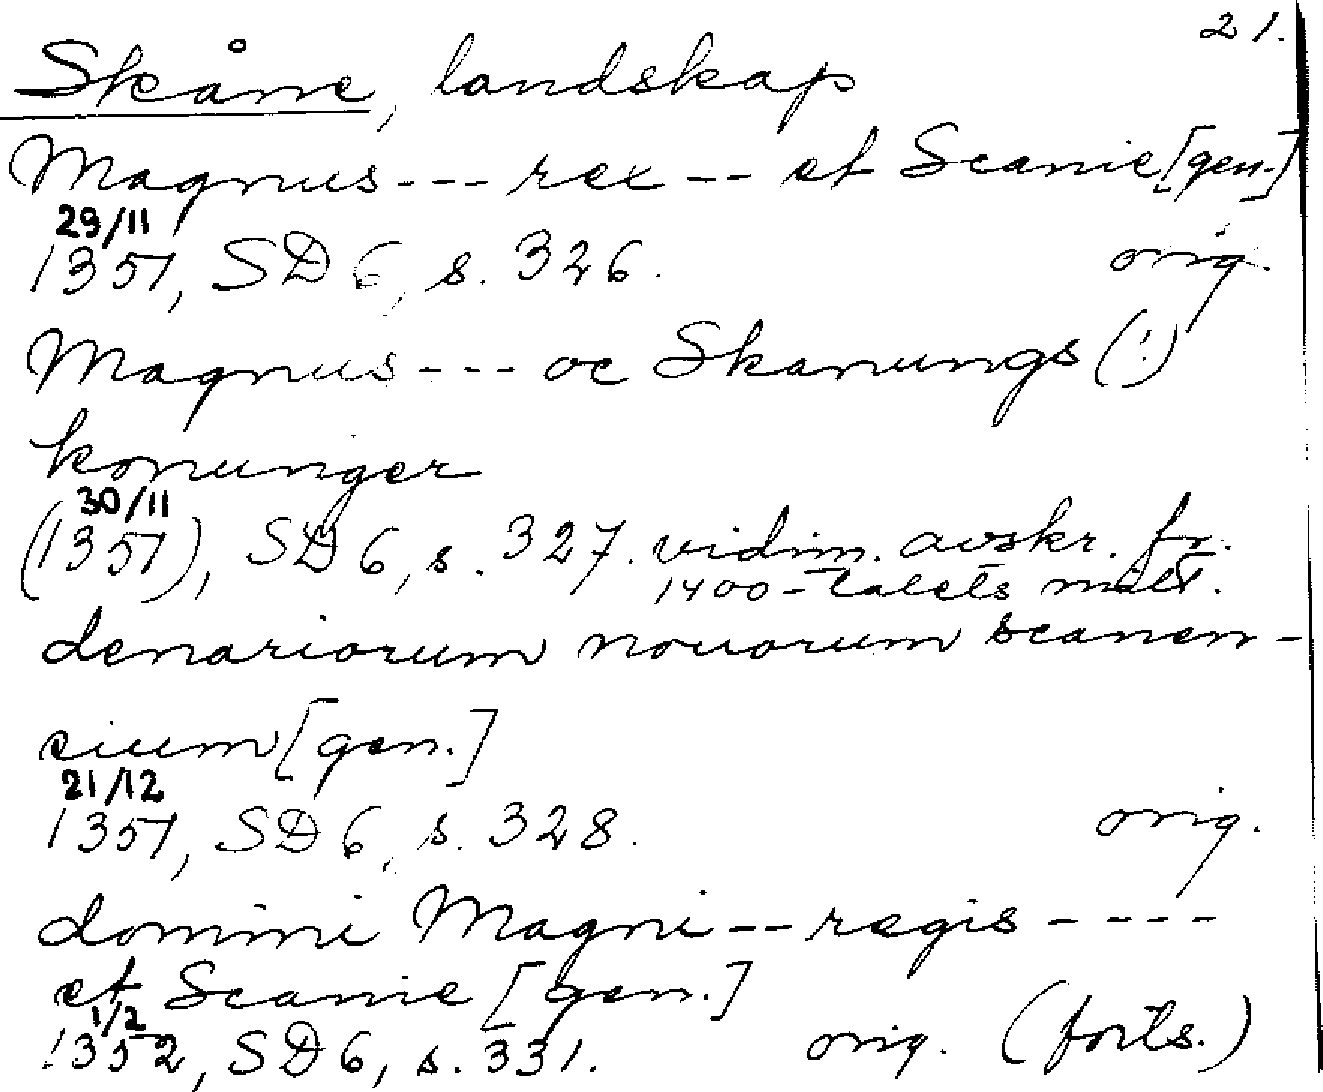 21.
Skåne, landskap
Magnus --- rex -- et Scanie [gen.]
29/11
1351, SD 6, s. 326. orig.
Magnus --- oc Skanungs (!)
konunger
30/11
(1351), SD 6, s. 327. vidim. avskr. fr.
1400-talets mitt.
denariorum nouorum scanen-
cium [gen.]
21/12
1351, SD 6, s. 328. orig.
domini Magni -- regis ----
et Scanie [gen.]
1/2
1352, SD 6, s. 331. orig. (forts.)